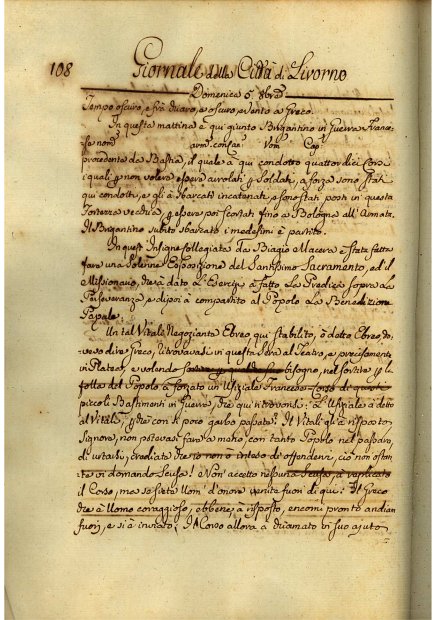 108 Giornale della Città di Livorno
Domenica 5 8bre
Tempo oscuro, e frà chiaro, e oscuro, e Vento a Greco.
In questa mattina è qui giunto Brigantino in Guerra Franc-
se nom° arm° con can¹ Vom¹ Cap°
procedente da Bastia, il quale à qui condotto quattordici Corsi
i quali non volere essere arrolati Soldati, a forza sono stati
qui condotti, e gli à sbarcati incatenati, e sono stati posti in questa
Fortezza vecchia essere poi scortati fino a Bologna all'Armata.
Il Brigantino subito sbarcato i medesimi è partito.
In quest'Insigne Collegiata da Biagio Macera è stata fatta
fare una Solenne Esposizione del Santissimo Sacramento, ed il
Missionario, che à dato l'Esercizi à fatto la Predica sopra la
Perseveranza, e dipoi à compartito al Popolo la Benedizione
Papale.
Un tal Vitale Negoziante Ebreo qui stabilito, ò detto Ebreo do-
vevo dire Greco, ritrovavasi in questa Sera al Teatro, e precisamente
in Platea, e volendo sortire bisogno, nel sortire la
folla del Popolo à forzato un Ufiziale Francese Corso di questi
piccoli Bastimenti in Guerra, che qui ritrovansi: L'Ufiziale à detto
al Vitali, perche con sì poco garbo passate? Il Vitali gli à risposto =
Signore, non potevasi fare a meno, con tanto Popolo nel passare,
di urtarsi, crediate che io non ò inteso d'offendervi, ciò non ostan-
te vi domando Scusa! Non accetto nessuna Scusa, à replicato
il Corso, ma se siete Uom' d'onore venite fuori di qui: Il Greco
che è Uomo coraggioso, ebbene, à risposto, eccomi pronto andiam
fuori, e si è inviato; Il Corso allora à chiamato in suo ajuto